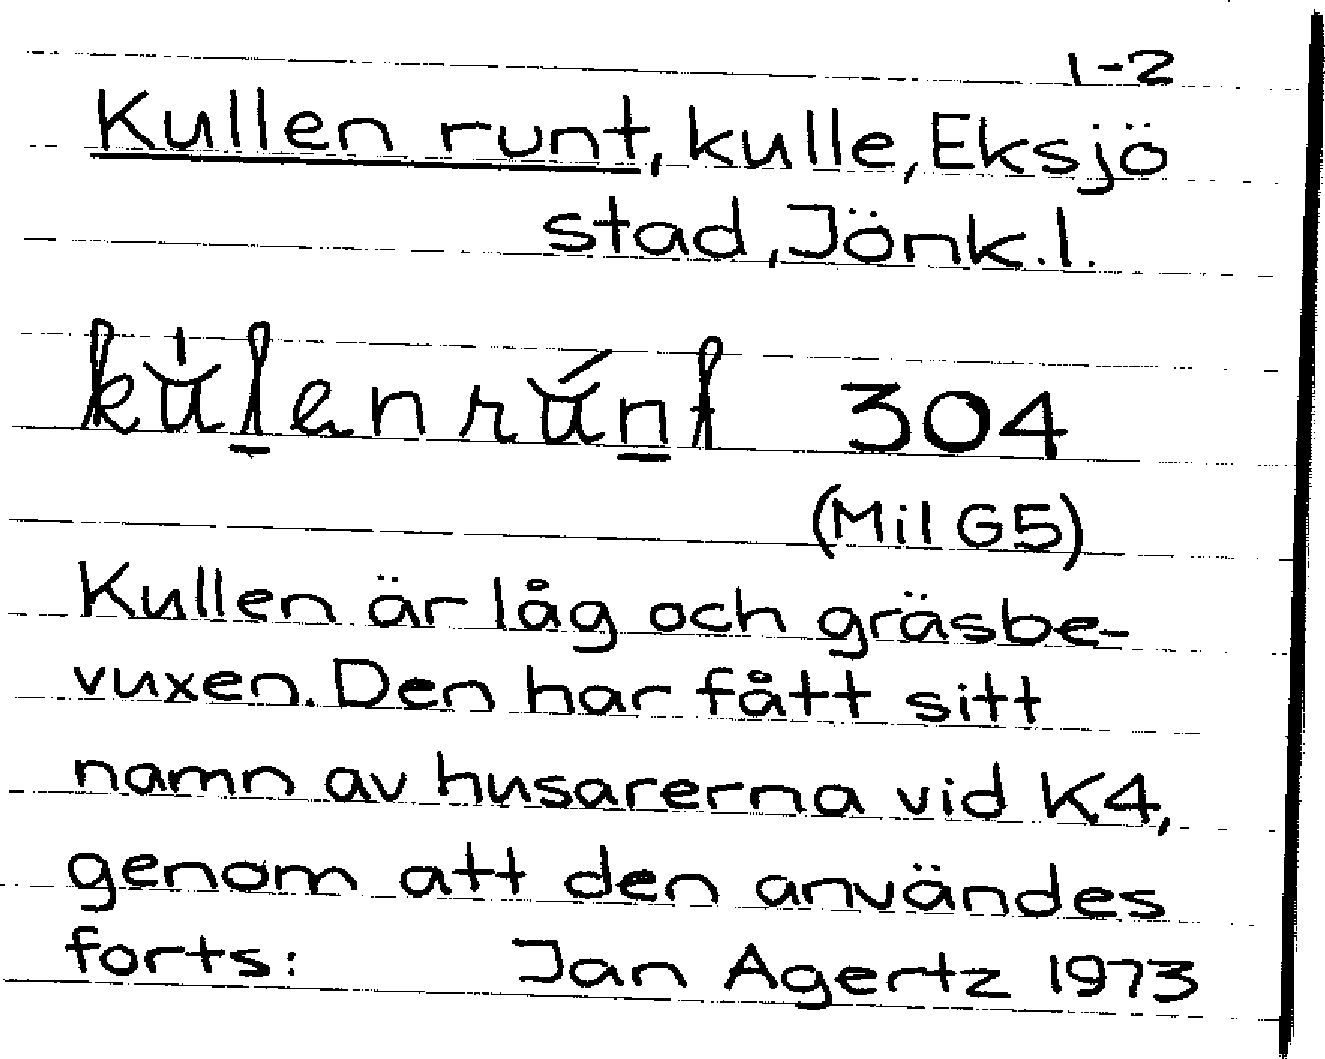 1-2
Kullen runt, kulle, Eksjö
stad, Jönk.l.
304
(Mil G5)
Kullen är låg och gräsbe-
vuxen. Den har fått sitt
namn av husarerna vid K4,
genom att den användes
forts: Jan Agertz 1973